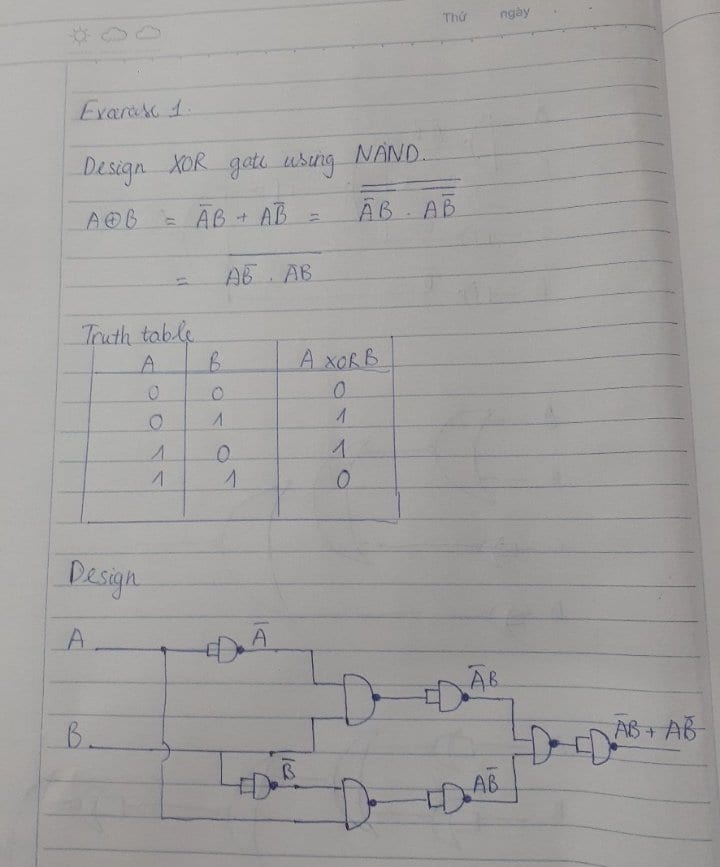 Thứ ngày
Exarcise 1.
Design XOR gate using NAND.
A⊕B = A̅B + AB̅ = \overline{\overline{A̅B} . \overline{AB̅}}
= \overline{AB̅ . A̅B}
Truth table
A B A XOR B
0 0 0
0 1 1
1 0 1
1 1 0
Design
A A̅
A̅B
B A̅B + AB̅
B̅ AB̅